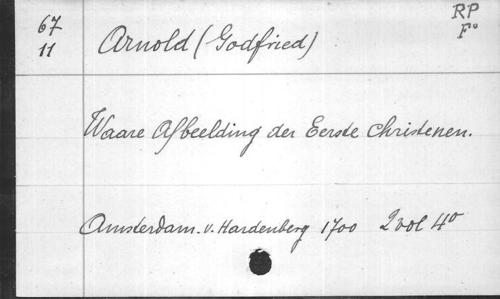 67 Arnold (Godfried) RP
11 F°
Waare Afbeelding der Eerste Christenen.
Amsterdam. v. Hardenberg 1700 2 vol 4°